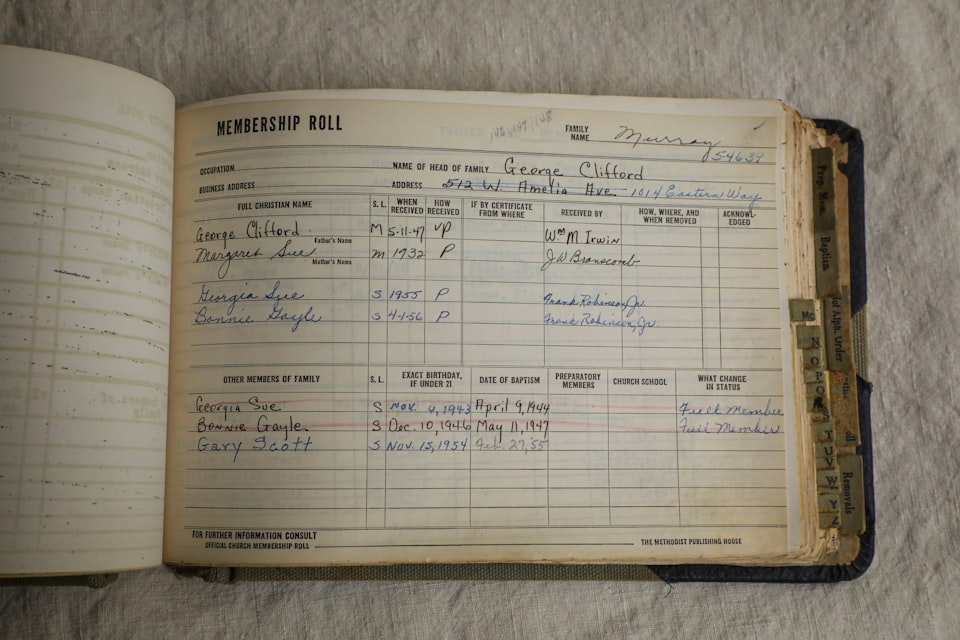 MEMBERSHIP ROLL
FAMILY NAME Murray
5-46-39
OCCUPATION NAME OF HEAD OF FAMILY George Clifford
BUSINESS ADDRESS ADDRESS 512 W. Amelia Ave. 1014 Eastern Way
FULL CHRISTIAN NAME S. L. WHEN RECEIVED HOW RECEIVED IF BY CERTIFICATE FROM WHERE RECEIVED BY HOW, WHERE, AND WHEN REMOVED ACKNOWL-EDGED
George Clifford M 5-11-47 VP Wm M Irwin
Father's Name
Margaret Sue m 1932 P J W Branscomb
Mother's Name
Georgia Sue S 1955 P Frank Robinson, Jr.
Bonnie Gayle S 4-1-56 P Frank Robinson, Jr.
OTHER MEMBERS OF FAMILY S. L. EXACT BIRTHDAY, IF UNDER 21 DATE OF BAPTISM PREPARATORY MEMBERS CHURCH SCHOOL WHAT CHANGE IN STATUS
Georgia Sue S Nov. 4, 1943 April 9, 1944 Full Member
Bonnie Gayle S Dec. 10, 1946 May 11, 1947 Full Member
Gary Scott S Nov. 15, 1954 Feb. 27, 55
FOR FURTHER INFORMATION CONSULT
OFFICIAL CHURCH MEMBERSHIP ROLL THE METHODIST PUBLISHING HOUSE
Prep. Mem.
Baptism
Alph. Order
Mc
N
O
P
S
T
U
V
W
Y
Z
Removals